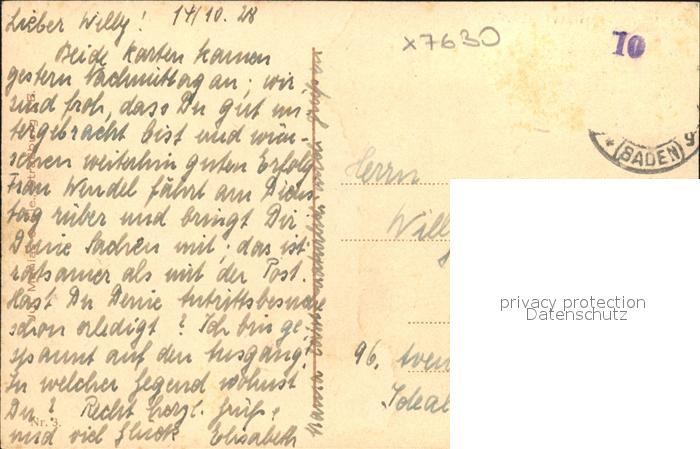 Lieber Willy! 14/10. 28
Beide Karten kamen
gestern Nachmittag an; wir
sind froh, dass Du gut un
tergebracht bist und wün-
schen weiterhin guten Erfolg
Frau Wendel fährt am Diens
tag rüber und bringt Dir
Deine Sachen mit; das ist
ratsamer als mit der Post.
Hast Du Deine Antrittsbesuche
schon erledigt? Ich bin ge-
spannt auf den Ausgang!
In welcher Gegend wohnst
Du? Recht herzl. Grüße
und viel Glück Elisabeth
Nr. 3.
x7630
10
* (BADEN) 9
Herrn
Willy
96. Aven
Ideal
privacy protection
Datenschutz